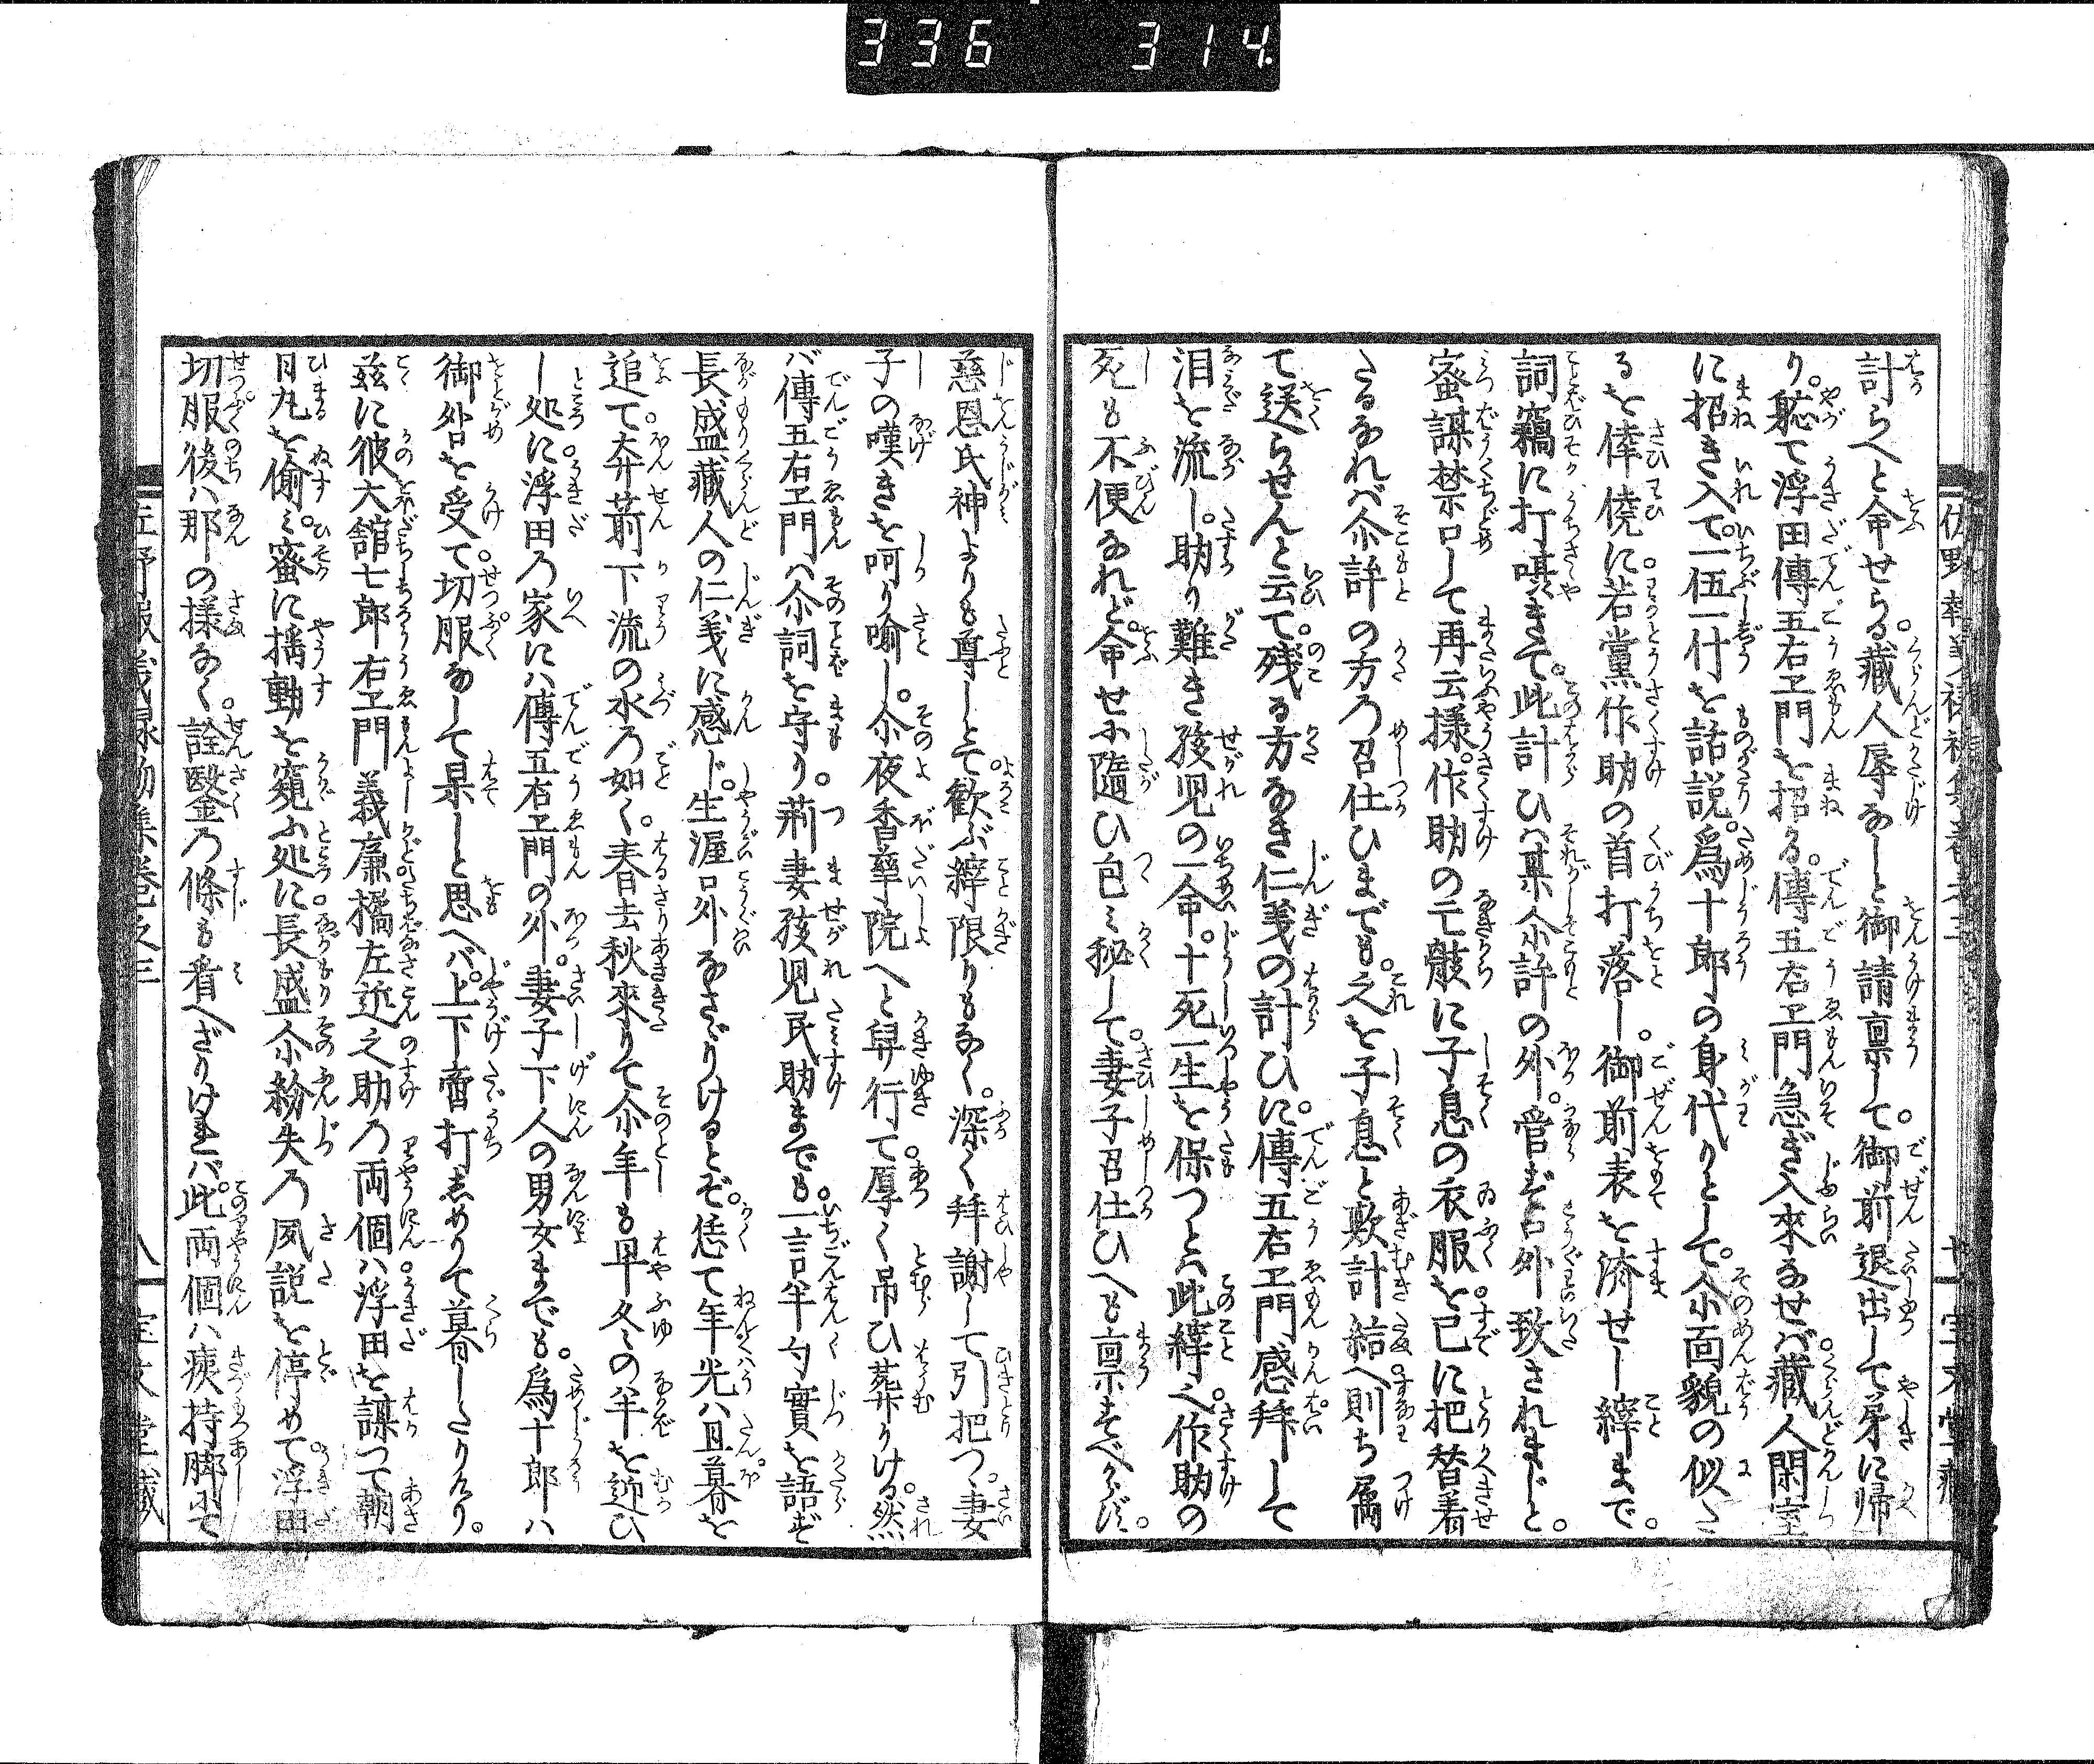 336 314
計らへと命せらる。藏人辱なしと御請稟して。御前退出して弟に帰
り。聴て浮田傳五右エ門を招る。傳五右エ門急ぎ入來なせバ。藏人閑室
に招き入て。一伍一什を話説。爲十郎の身代りとして。尒面貌の似た
るを倖僥に。若黨作助の首打落し。御前表を済せし縡まで。
詞竊に打嘆きて。此計ひハ某尒許の外。管ず口外致されまじと。
蜜謀禁口して再云様。作助の亡骸に子息の衣服を。已に把替着
たるなれバ尒許の方乃召仕ひまでも。之を子息と欺計給へ。則ち属
て送らせんと云て。残る方なき仁義の計ひに。傳五右エ門感拜して
泪を流し。助り難き孩児の一命。十死一生を保つとハ此縡之。作助の
死も不便なれど。命せに隨ひ包ミ秘して。妻子召仕ひへも禀さずべからず。
慈恩氏神よりも尊しとて。歓ぶ縡限りもなく。深く拜謝して引把つ。妻
子の嘆きを呵り喩し。尒夜香華院へと舁行て。厚く吊ひ葬りける。然
バ傳五右エ門ハ尒詞を守り。荊妻孩児民助までも。一言半句實を語ず
長盛藏人の仁義に感じ。生涯口外なさゞりけるとぞ。恁て年光ハ旦暮を
追て。奔箭下流の水乃如く。春去秋來りて尒年も早冬の半を迎ひ
し処に。浮田乃家にハ傳五右エ門の外。妻子下人の男女までも。爲十郎ハ
御咎を受て。切服なして果しと思へバ。上下齊打しめりて暮したりけり。
茲に彼大舘七郎右エ門義廉橘左近之助乃両個ハ。浮田を謀つて朝
日丸を偷ミ。蜜に揺動を窺ふ処に。長盛尒紛失乃風説を停めて。浮田
切服後ハ那の様なく。詮鑿乃條も看へざりけれバ。此両個ハ痰持脚にて
佐野報義録初集巻之三
八
宝文堂藏